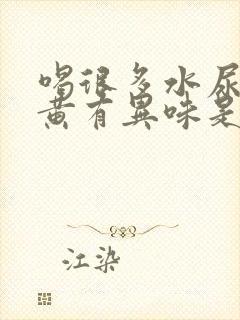 喝很多水尿
黄有异味是
江染